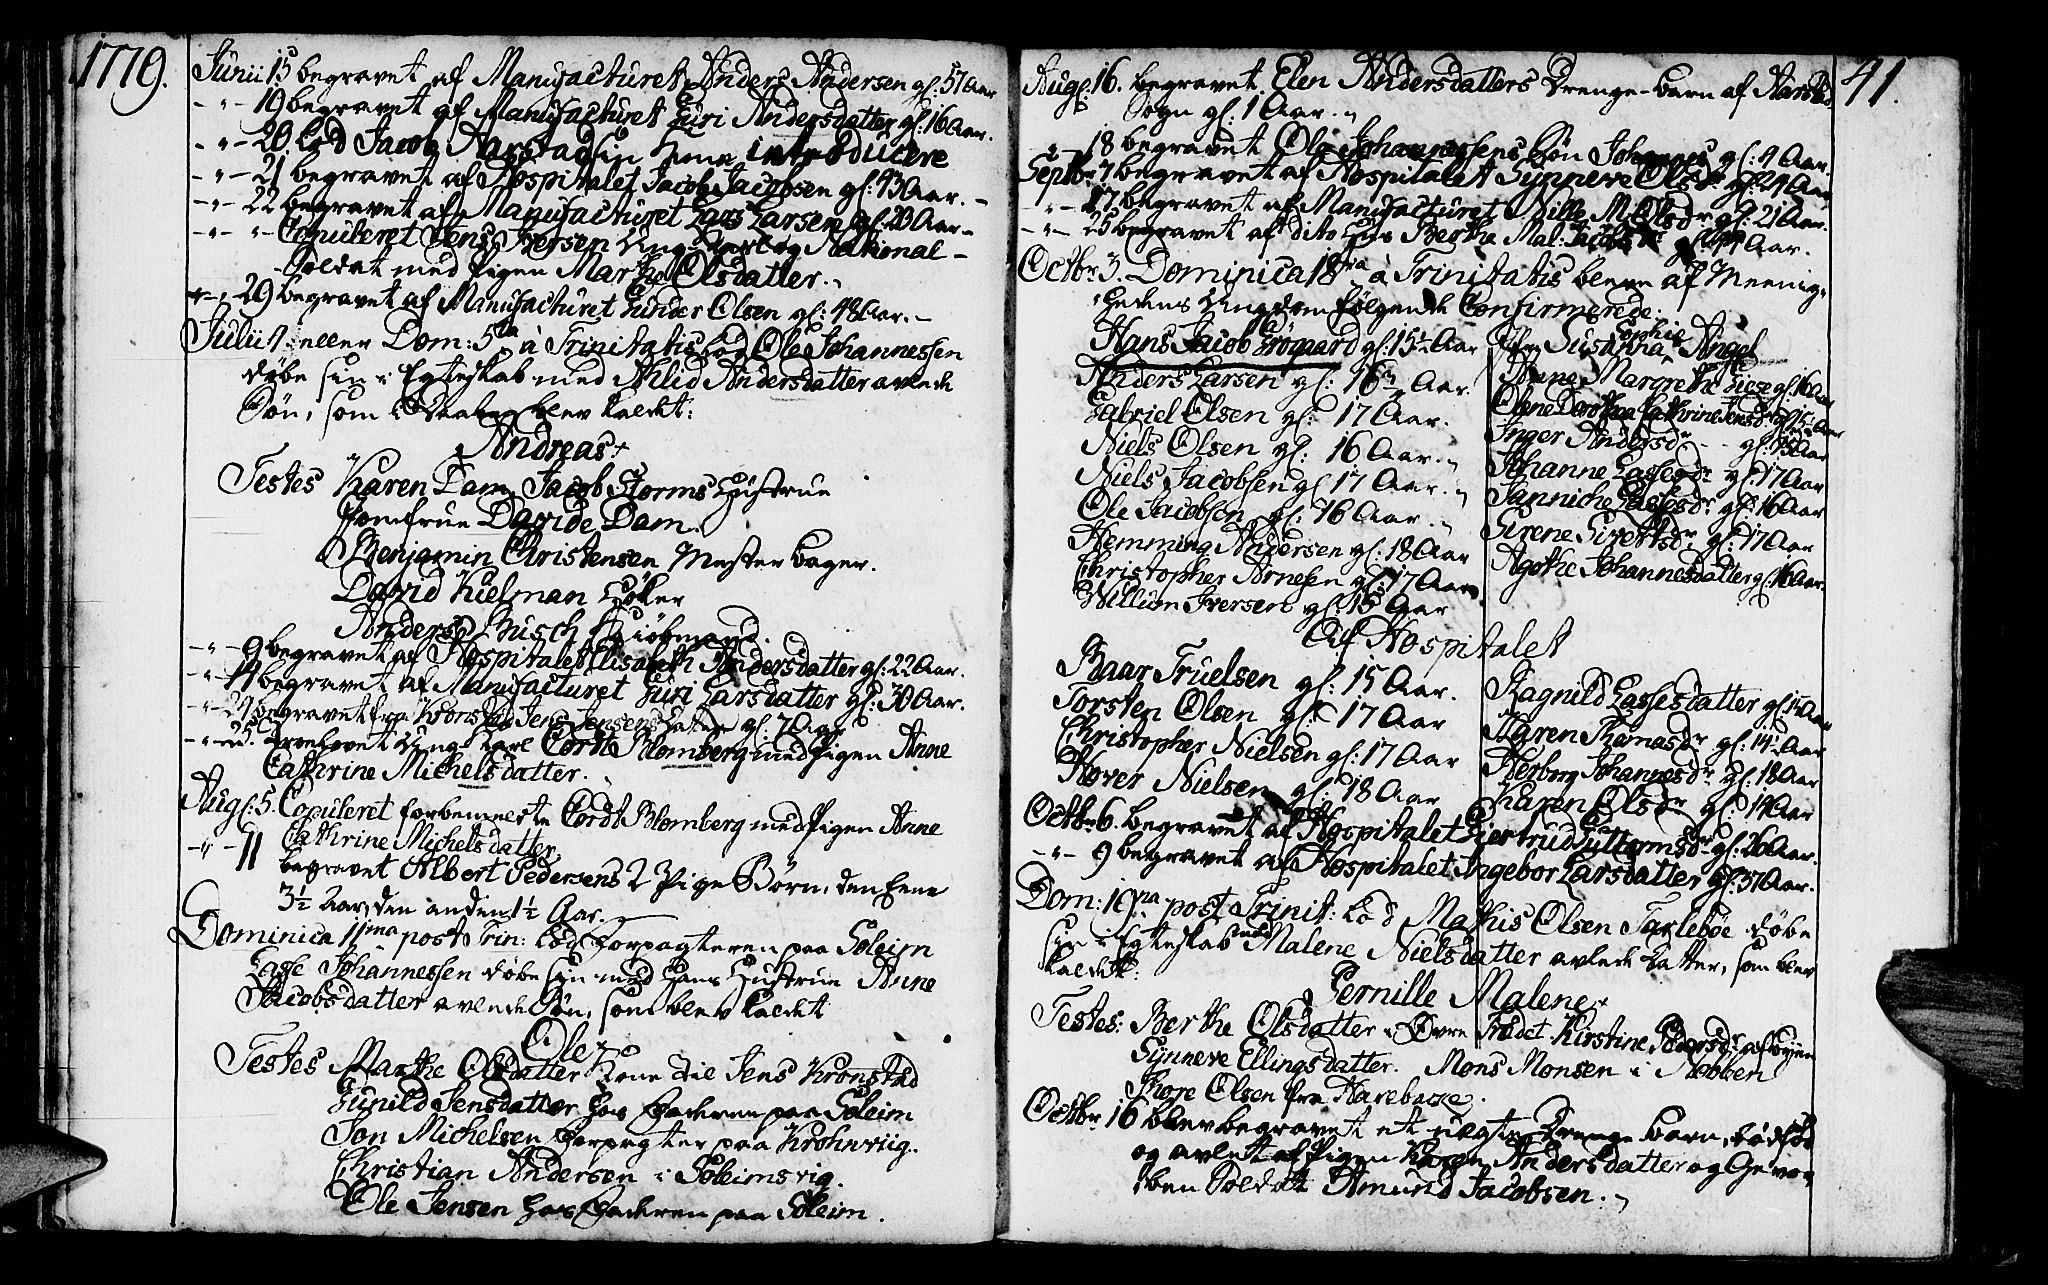 1779.
Junii 15 begravet af Manufacturet Anders Andersen gl. 57 Aar
- " - 19 begravet af Manufacturet Guri Andersdatter gl: 16 Aar.
- " - 20. lod Jacob Aarstad sin Kone introducere
- " - 21 begravet af Hospitalet Jacob Jacobsen gl: 43 Aar. -
- " - 22 begravet af Manufacturet Lars Larsen gl: 20 Aar -
- " - " - Copuleret Jens Iversen Ung Karl og National-
Soldat med Pigen Marthe Olsdatter.
- " - 29 begravet af Manufacturet Gunder Olsen gl: 48 Aar. -
Julii 4 eller Dom: 5ta à Trinitatis lod Ole Johannessen
døbe sin i Egteskab med Ahlid Andersdatter avlede
Søn, som i Daaben blev kaldt:
Andreas
Testes Karen Dam, Jacob Storms Hustrue
Jomfrue Davide Dam.
Benjamin Christensen Mester Bager.
David Kielman Høker
Anders Busch Kiøbmand.
- " - 9 begravet af Hospitalet Elisabeth Andersdatter gl: 22 Aar.
- " - 14 begravet af Manufacturet Guri Larsdatter gl: 30 Aar.
- " - 21 begravet fra Kronstad Jens Jensens Datter gl. 7 Aar
- " - 25. Trolovet Ung-Karl Cordt Blomberg med Pigen Anne
Cathrine Michelsdatter.
Aug: 5. Copuleret forbemeldte Cordt Blomberg med Pigen Anne
Cathrine Michelsdatter
- " - 11 begravet Albert Pedersens 2 Pige Børn, den Eene
3½ Aar, den anden 1½ Aar.
Dominica 11ma post Trin: lod Forpagteren paa Soleim
Lasse Johannessen døbe sin med Hans Hustrue Anne
Jacobsdatter avlede Søn, som blev kaldt
Ole
Testes Marthe Olsdatter Kone til Jens Kronstad
Gunild Jensdatter hos Faderen paa Soleim
Jon Michelsen Forpagter paa Krohnviig.
Christian Andersen i Soleimsvig.
Ole Jensen hos Faderen paa Soleim.
41.
Aug: 16. begravet Elen Andersdatters Drenge-Barn af Aarstad
Sogn gl. 1 Aar.
- " - 18 begravet Ole Johannessens Søn Johannes gl: 4 Aar.
Septbr 7 begravet af Hospitalet Synneve Olsdr gl: 24 Aar
- " - 17 begravet af Manufacturet Nille M. Olsdr gl: 21 Aar.
- " - 25 begravet af dito Hus Berthe Mal: Jacobsdr gl: Aar.
Octbr 3. Dominica 18va à Trinitatis bleve af Meenig-
hedens Ungdom følgende Confirmerede:
Hans Jacob Grögaard gl: 15½ Aar
Anders Larsen gl: 16 Aar.
Gabriel Olsen gl: 17 Aar.
Niels Olsen gl: 16 Aar.
Niels Jacobsen gl 17 Aar.
Ole Jacobsen gl: 16 Aar.
Hemming Andersen gl: 18 Aar
Christopher Arnesen gl: 17 Aar
Willum Iversen gl: 15 Aar
Jfr Susanna Sophie Angel
Anne Margrethe gl: 16 Aar
Olene Dorothea Cathrine Jensdr gl: 15½ Aar
Inger Andersdr - - gl: 15 Aar
Johanne Lassesdr gl: 17 Aar
Janniche Lassesdr gl: 16 Aar
Sirene Sivertsdr gl: 17 Aar
Agothe Johannesdatter gl: 16 Aar.
Af Hospitalet
Baar Truelsen gl: 15 Aar.
Torsten Olsen gl: 17 Aar
Christopher Nielsen gl: 17 Aar
Hover Nielsen gl: 18 Aar
Ragnild Lassesdatter gl: 15 Aar
Karen Thomasdr gl: 14½ Aar
Herborg Johannesdr gl: 18 Aar
Karen Olsdr gl: 19 Aar
Octbr 6. begravet af Hospitalet Giertrud Guttormsdr gl: 26 Aar.
- " - 9 begravet af Hospitalet Ingebor Larsdatter gl: 37 Aar.
Dom: 19na post Trinit: lod Mathis Olsen Tarlebøe døbe
sin i Egteskab med Malene Nielsdatter avlede Datter, som blev
kaldet:
Pernille Malene
Testes: Berthe Olsdatter i Øvre Frædet. Kirstine Pedersdr af Byen
Synneve Ellingsdatter. Mons Monsen i Nobben
Thore Olsen fra Harebacke.
Octbr 16 blev begravet et uægte Drenge Barn, dødfød
og avlet af Pigen Karen Andersdatter og Gevor-
ben Soldat Amund Jacobsen.